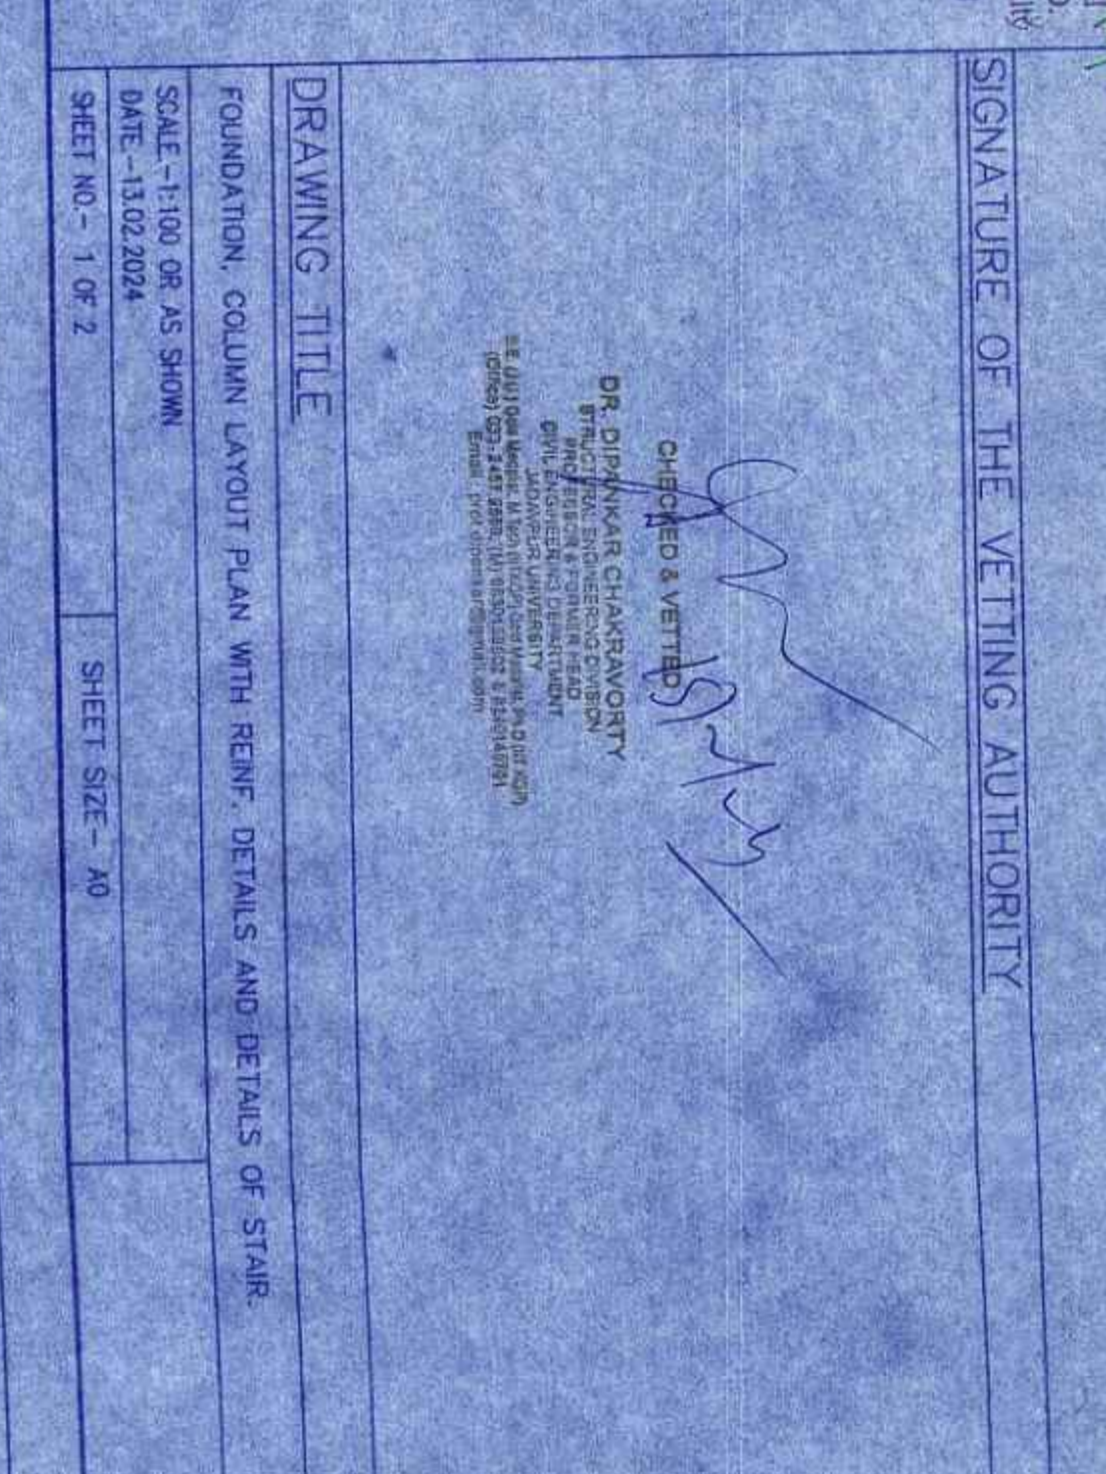 SIGNATURE OF THE VETTING AUTHORITY
CHECKED & VETTED
DR. DIPANKAR CHAKRAVORTY
STRUCTURAL ENGINEERING DIVISION
PROFESSOR & FORMER HEAD
CIVIL ENGINEERING DEPARTMENT
JADAVPUR UNIVERSITY
DRAWING TITLE
FOUNDATION, COLUMN LAYOUT PLAN WITH REINF. DETAILS AND DETAILS OF STAIR.
SCALE -1:100 OR AS SHOWN
DATE -13.02.2024
SHEET NO.- 1 OF 2
SHEET SIZE- A0